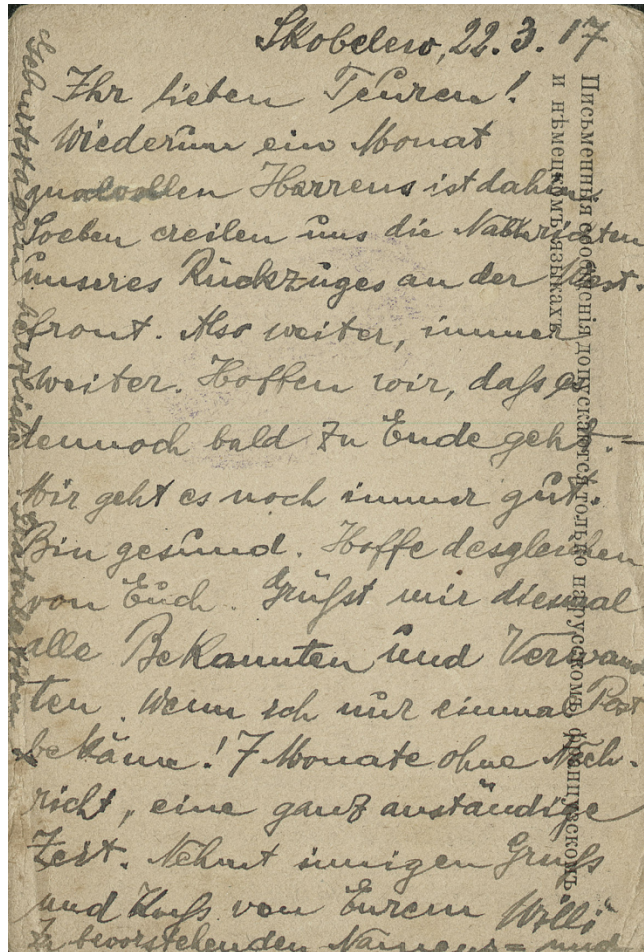 Skobelew, 22.3.17
Ihr lieben Teuren!
Wiederum ein Monat
qualvollen Harrens ist dahin.
Soeben ereilen uns die Nachrichten
unseres Rückzuges an der West-
front. Also weiter, immer
weiter. Hoffen wir, daß es
dennoch bald zu Ende geht. –
Mir geht es noch immer gut.
Bin gesund. Hoffe desgleichen
von Euch. Grüßt mir diesmal
alle Bekannten und Verwand
ten. Wenn ich nur einmal Post
bekäme! 7 Monate ohne Nach-
richt, eine ganz anständige
Zeit. Nehmt innigen Gruß
und Kuß von Eurem Willi
Zu bevorstehenden Namens- und
Geburtstagen herzliche Gratulation
Письменныя сообщенія допускаются только на русскомъ, французскомъ
и нѣмецкомъ языкахъ.